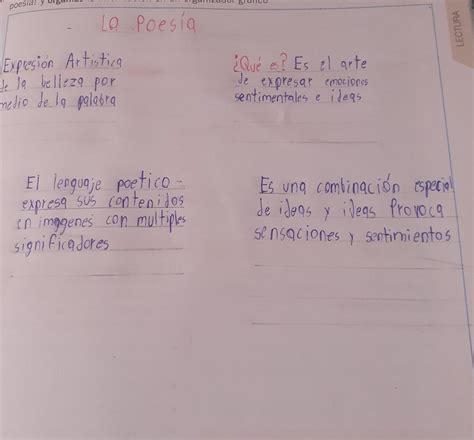 poesía? y organiza
organizador gráfico
LECTURA
La Poesía
Expresión Artística
de la belleza por
medio de la palabra
¿Qué es? Es el arte
de expresar emociones
sentimentales e ideas
El lenguaje poetico-
expresa sus contenidos
en imagenes con multiples
significadores
Es una combinación especial
de ideas y ideas Provoca
sensaciones y sentimientos